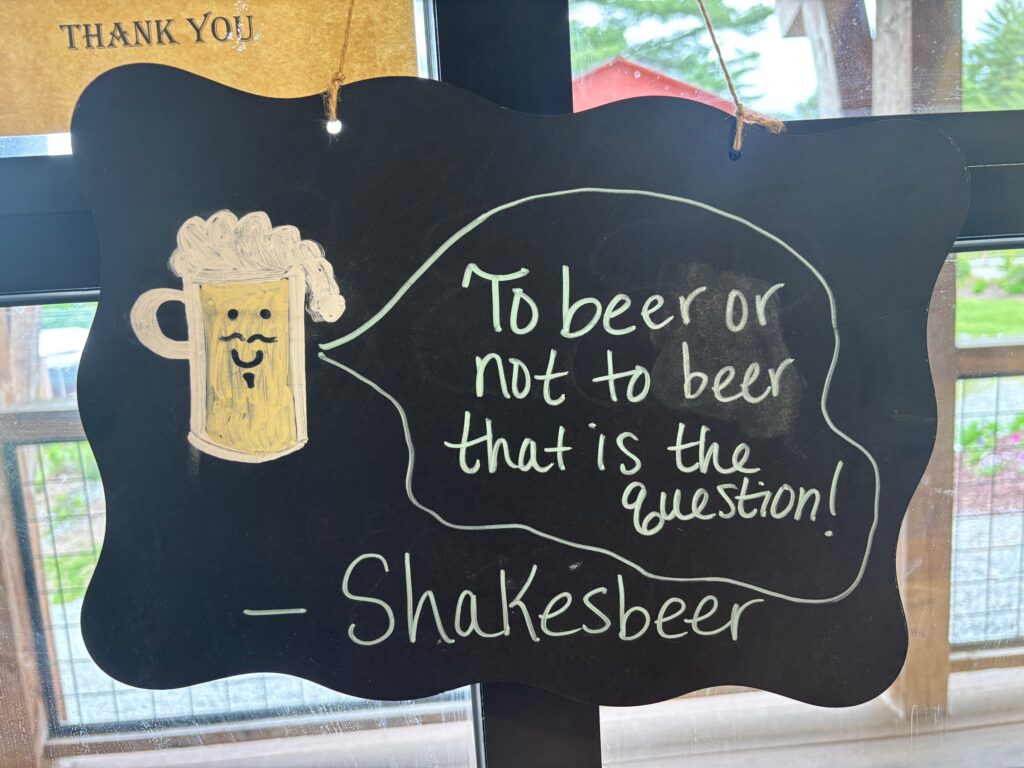 THANK YOU
To beer or
not to beer
that is the
question!
— Shakesbeer